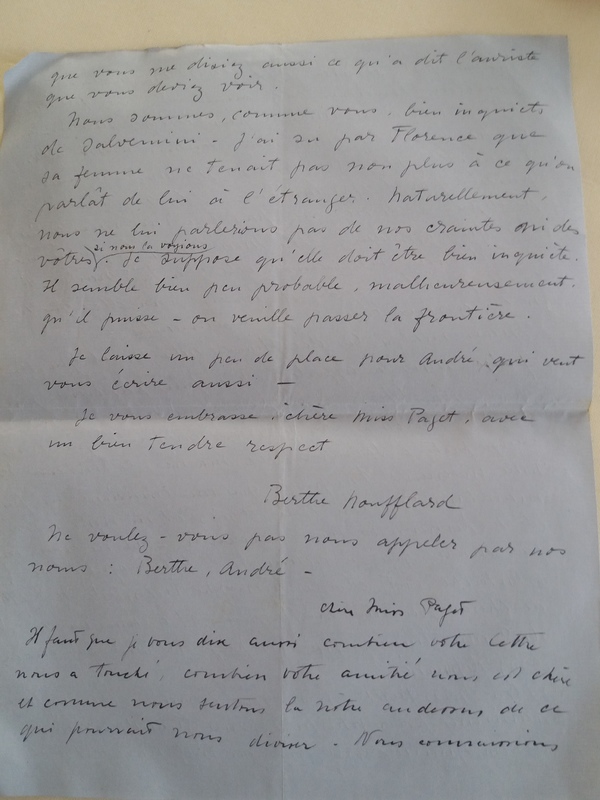 que vous me disiez aussi ce qu'a dit l'auriste
que vous deviez voir.
Nous sommes, comme vous, bien inquiets
de Salvemini - J'ai su par Florence que
sa femme ne tenait pas non plus à ce qu'on
parlât de lui à l'étranger. Naturellement,
nous ne lui parlerions pas de nos craintes oni des
si nous la voyions
vôtres. Je suppose qu'elle doit être bien inquiète.
Il semble bien peu probable, malheureusement,
qu'il puisse - ou veuille passer la frontière.
Je laisse un peu de place pour André qui veut
vous écrire aussi -
Je vous embrasse, chère Miss Paget, avec
un bien tendre respect
Berthe Noufflard
Ne voulez-vous pas nous appeler par nos
noms : Berthe, André -
chère Miss Paget
Il faut que je vous dise aussi combien votre lettre
nous a touché, combien votre amitié nous est chère
et comme nous sentons la nôtre au dessus de ce
qui pourrait nous diviser - Nous connaissions